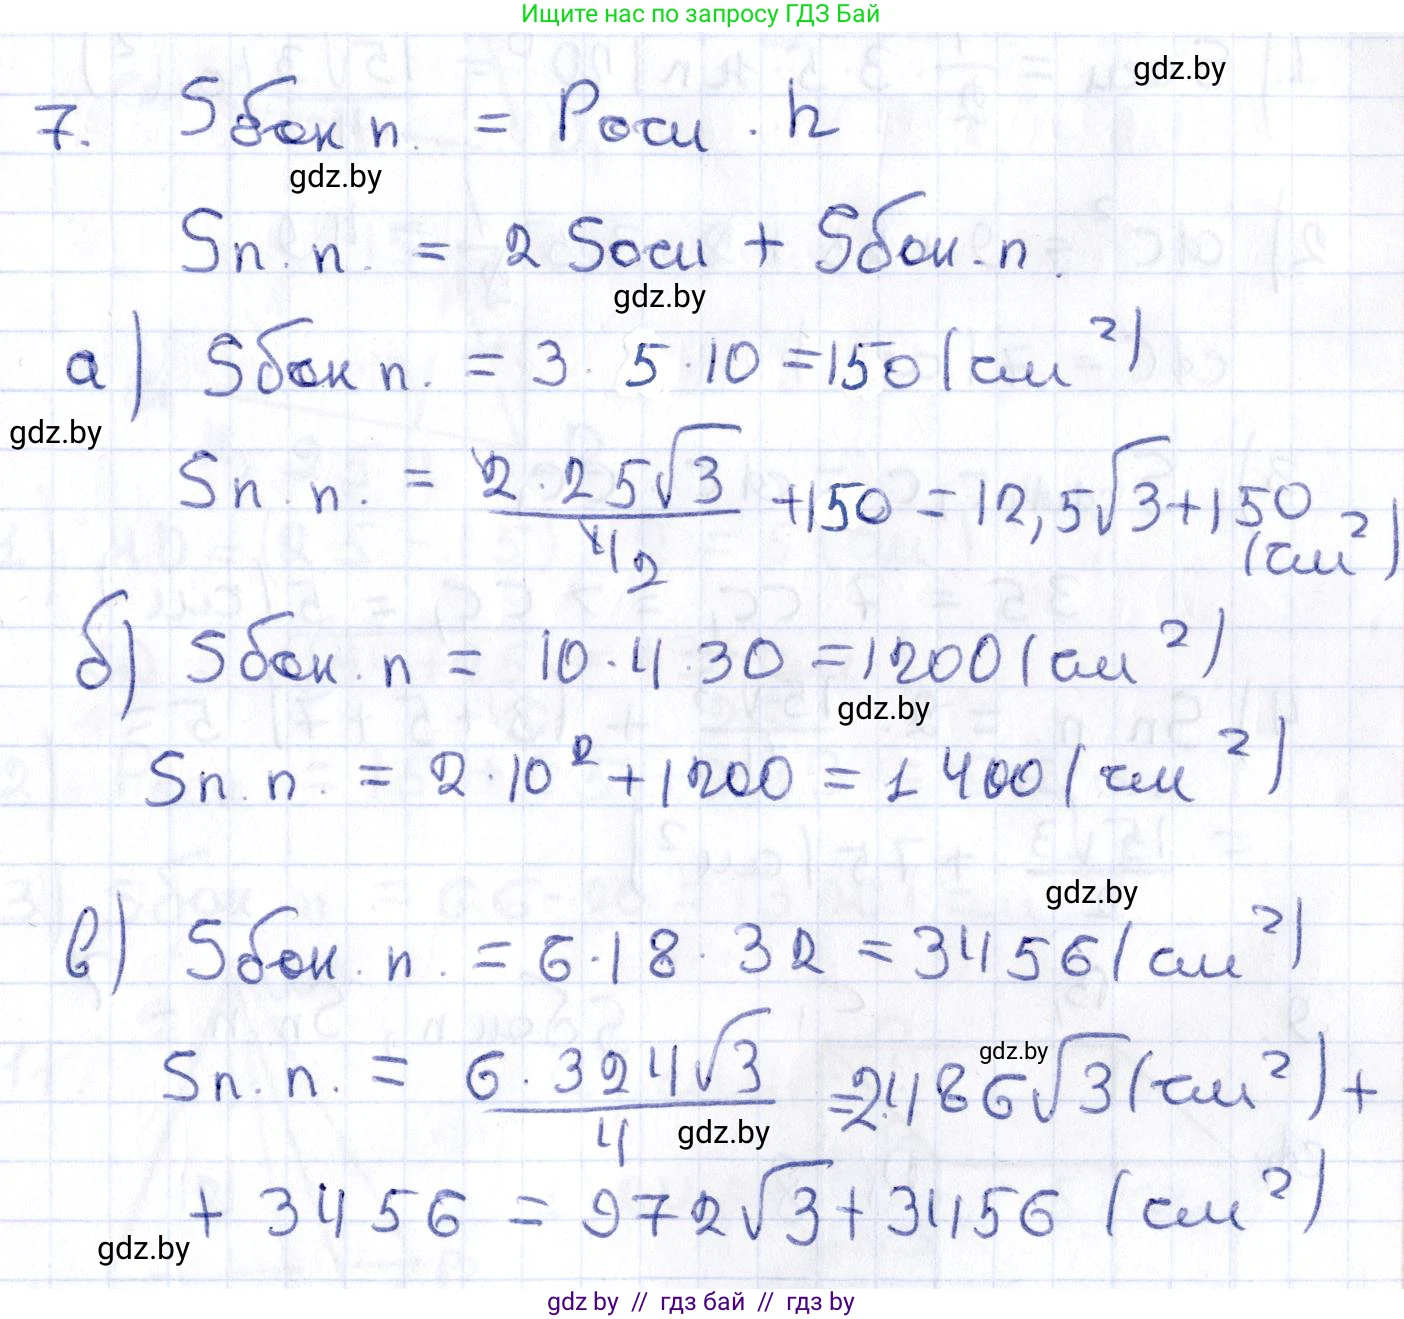 Ищите нас по запросу ГДЗ Бай
gdz.by
7. Sбок п. = Pосн · h
gdz.by
Sп.п. = 2 Sосн + Sбок.п.
gdz.by
а) Sбок п. = 3 · 5 · 10 = 150 (см²)
gdz.by
Sп.п. = 2·25√3/4 2 + 150 = 12,5√3 + 150 (см²)
б) Sбок.п = 10·4·30 = 1200 (см²)
gdz.by
Sп.п. = 2·10² + 1200 = 1400 (см²)
gdz.by
в) Sбок.п. = 6·18·32 = 3456 (см²)
Sп.п. = 6·324√3/4 = 2·486√3 (см²) +
gdz.by
gdz.by
+ 3456 = 972√3 + 3456 (см²)
gdz.by
gdz by // гдз бай // гдз by